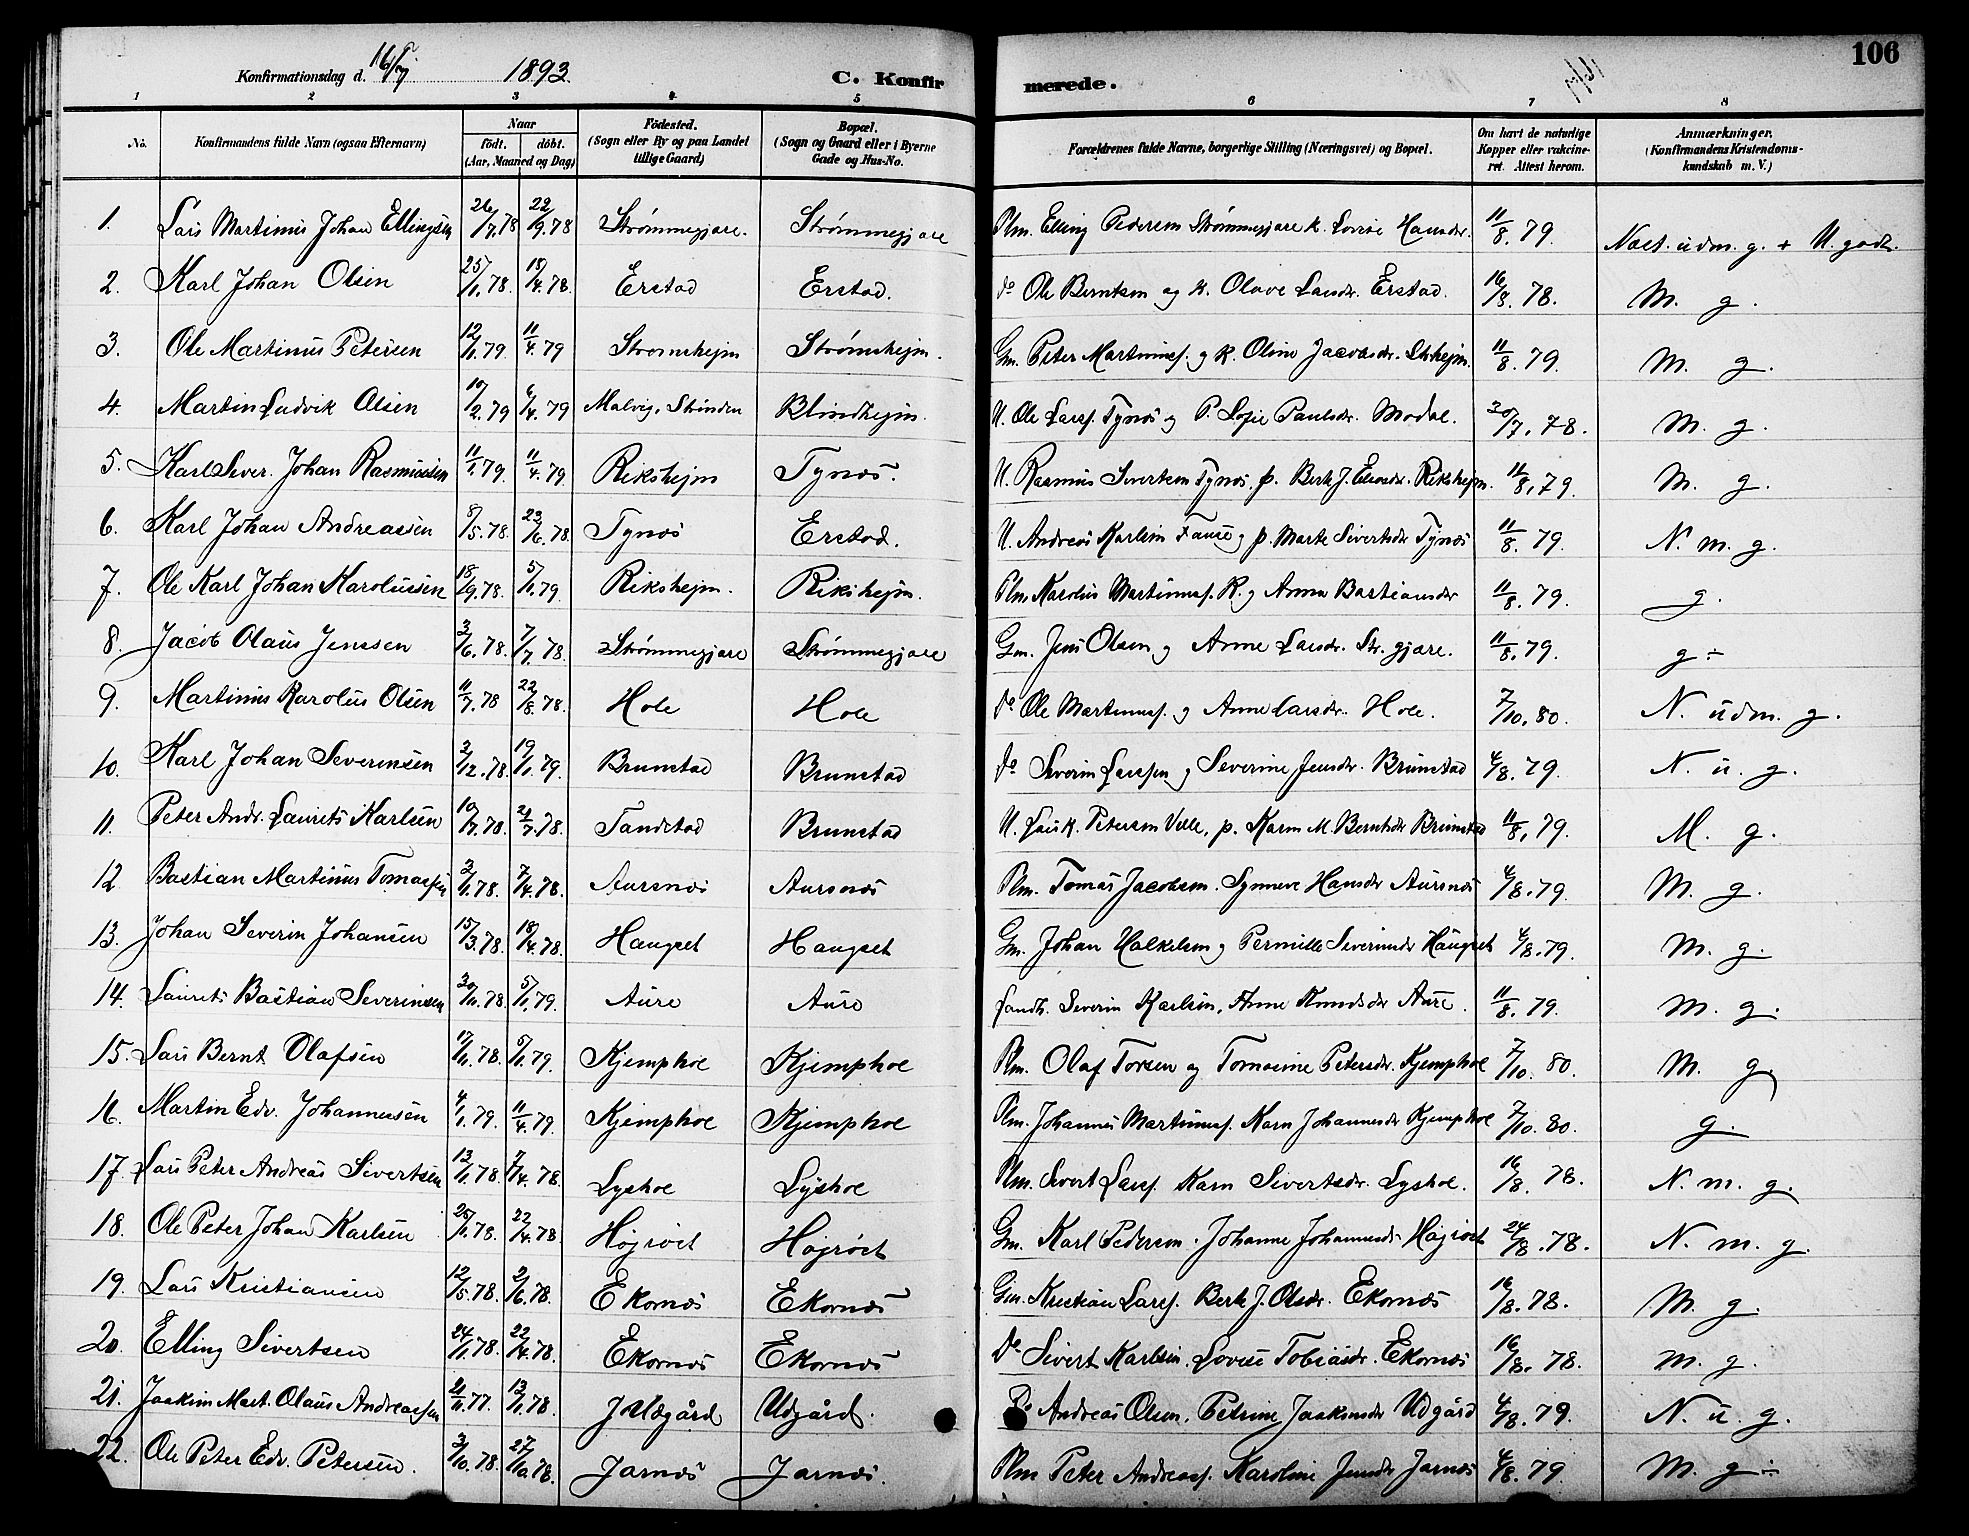 Konfirmationsdag d. 16/7 1893. C. Konfirmerede. 106
1 2 3 4 5 6 7 8
No. Konfirmandens fulde Navn (ogsaa Efternavn) Naar födt. döbt. (Aar, Maaned og Dag) Födested. (Sogn eller By og paa Landet tillige Gaard) Bopæl. (Sogn og Gaard eller i Byerne Gade og Hus-No. Forældrenes fulde Navne, borgerlige Stilling (Næringsvei) og Bopæl. Om havt de naturlige Kopper eller vakcineret. Attest herom. Anmærkninger. (Konfirmandens Kristendomskundskab m. V.)
1. Lars Martinus Johan Ellingsen 26/7.78 22/9.78 Strømmegjære. Strømmegjære Plm. Elling Pedersen Strømmegjære k. Lovise Hansdr. 11/8.79. Næst. udm. g. + U. godt.
2. Karl Johan Olsen 25/1.78. 18/4.78. Erstad Erstad. do Ole Berntsen og k. Olave Larsdr. Erstad. 16/8.78. M. g.
3. Ole Martinus Petersen 12/1.79. 11/4.79 Strømshejm Strømshejm. Gm. Peter Martinusf. og k. Oline Jacobsdr. Strhejm. 11/8.79. M. g.
4. Martin Ludvik Olsen 10/2.79 6/4.79 Malvig, Strinden Blindhejm. U. Ole Larsf. Tynæs og P. Sofie Paulsdr. Modal. 30/7.78. M. g.
5. Karl Siver. Johan Rasmussen 11/1.79. 11/4.79. Rikshejm Tynæs. U. Rasmus Sivertsen Tynæs, p. Berte J. Eliasdr. Rikshejm. 11/8.79. M. g.
6. Karl Johan Andreassen 8/5.78. 23/6.78. Tynæs Erstad. U. Andreas Karlsen Fause og p. Marte Sivertsdr Tynæs 11/8.79. N. m. g.
7. Ole Karl Johan Karolussen 18/9.78. 5/1.79. Rikshejm. Rikshejm. Plm. Karolus Martinusf. R. og Anna Bastiansdr 11/8.79. g.
8. Jacob Olaus Jenssen 3/6.78. 7/7.78. Strømmegjære Strømmegjære Gm. Jens Olsen og Anne Larsdr. Str. gjære. 11/8.79. g ÷
9. Martinus Karolus Olsen 11/7.78 22/8.78. Hole Hole do Ole Martinusf. og Anne Larsdr. Hole. 7/10.80. N. udm. g.
10. Karl Johan Severinsen 2/12.78. 19/1.79. Brunstad Brunstad do Severin Larssen og Severine Jensdr. Brunstad 4/8.79. N. u. g.
11. Peter Andr. Laurits Karlsen 10/7.78. 21/7.78. Tandstad Brunstad U. Lars K. Petersen Velle, p. Karen M. Berntsdr Brunstad 11/8.79. M. g.
12 Bastian Martinus Tomassen 3/1.78. 7/4.78. Aursnæs Aursnæs Plm. Tomas Jacobsen. Synneve Hansdr Aursnæs 4/8.79 M. g.
13. Johan Severin Johansen 15/3.78. 18/4.78. Haugset Haugset Gm. Johan Halkelsen og Pernille Severinsdr Haugset 4/8.79. M. g.
14. Laurits Bastian Severinsen 30/11.78. 5/1.79. Aure Aure Landh. Severin Karlsen, Anne Knudsdr Aure. 11/8.79. M. g.
15. Lars Bernt Olafsen 17/11.78. 5/1.79. Kjemphoe Kjemphoe Plm. Olaf Torsen og Tomasine Petersdr. Kjemphoe 7/10.80. M. g.
16. Martin Edv. Johannessen 4/1.79. 11/4.79. Kjemphoe Kjemphoe Plm. Johannes Martinusf. Karn Johannesdr Kjemphoe 7/10.80. g.
17. Lars Peter Andreas Sivertsen 13/1.78. 7/4.78. Lyshoe Lyshoe Plm. Sivert Larsf. Karn Sivertsdr. Lyshoe. 16/8.78. N. m. g.
18. Ole Peter Johan Karlsen 25/1.78. 22/4.78. Højrøst Højrøst Gm. Karl Pedersen. Johanne Johannesdr Højrøst 24/8.78. N. m. g.
19. Lars Kristiansen 12/5.78. 2/6.78. Ekornæs Ekornæs Gm. Kristian Larsf. Berte J. Olsdr. Ekornæs 16/8.78. M. g.
20. Elling Sivertsen 24/1.78. 22/4.78. Ekornæs Ekornæs do Sivert Karlsen. Lovise Tobiasdr. Ekornæs 16/8.78. M. g.
21. Joakim Mart. Olaus Andreassen 21/11.77. 13/1.78. J Udgård Udgård. Andreas Olsen, Petrine Joakimsdr Udgård 4/8.79. N. u. g.
22. Ole Peter Edv. Petersen. 3/10.78. 27/10.78. Jarnæs Jarnæs. Plm Peter Andreasf. Karoline Jensdr Jarnæs 4/8.79 M. g ÷